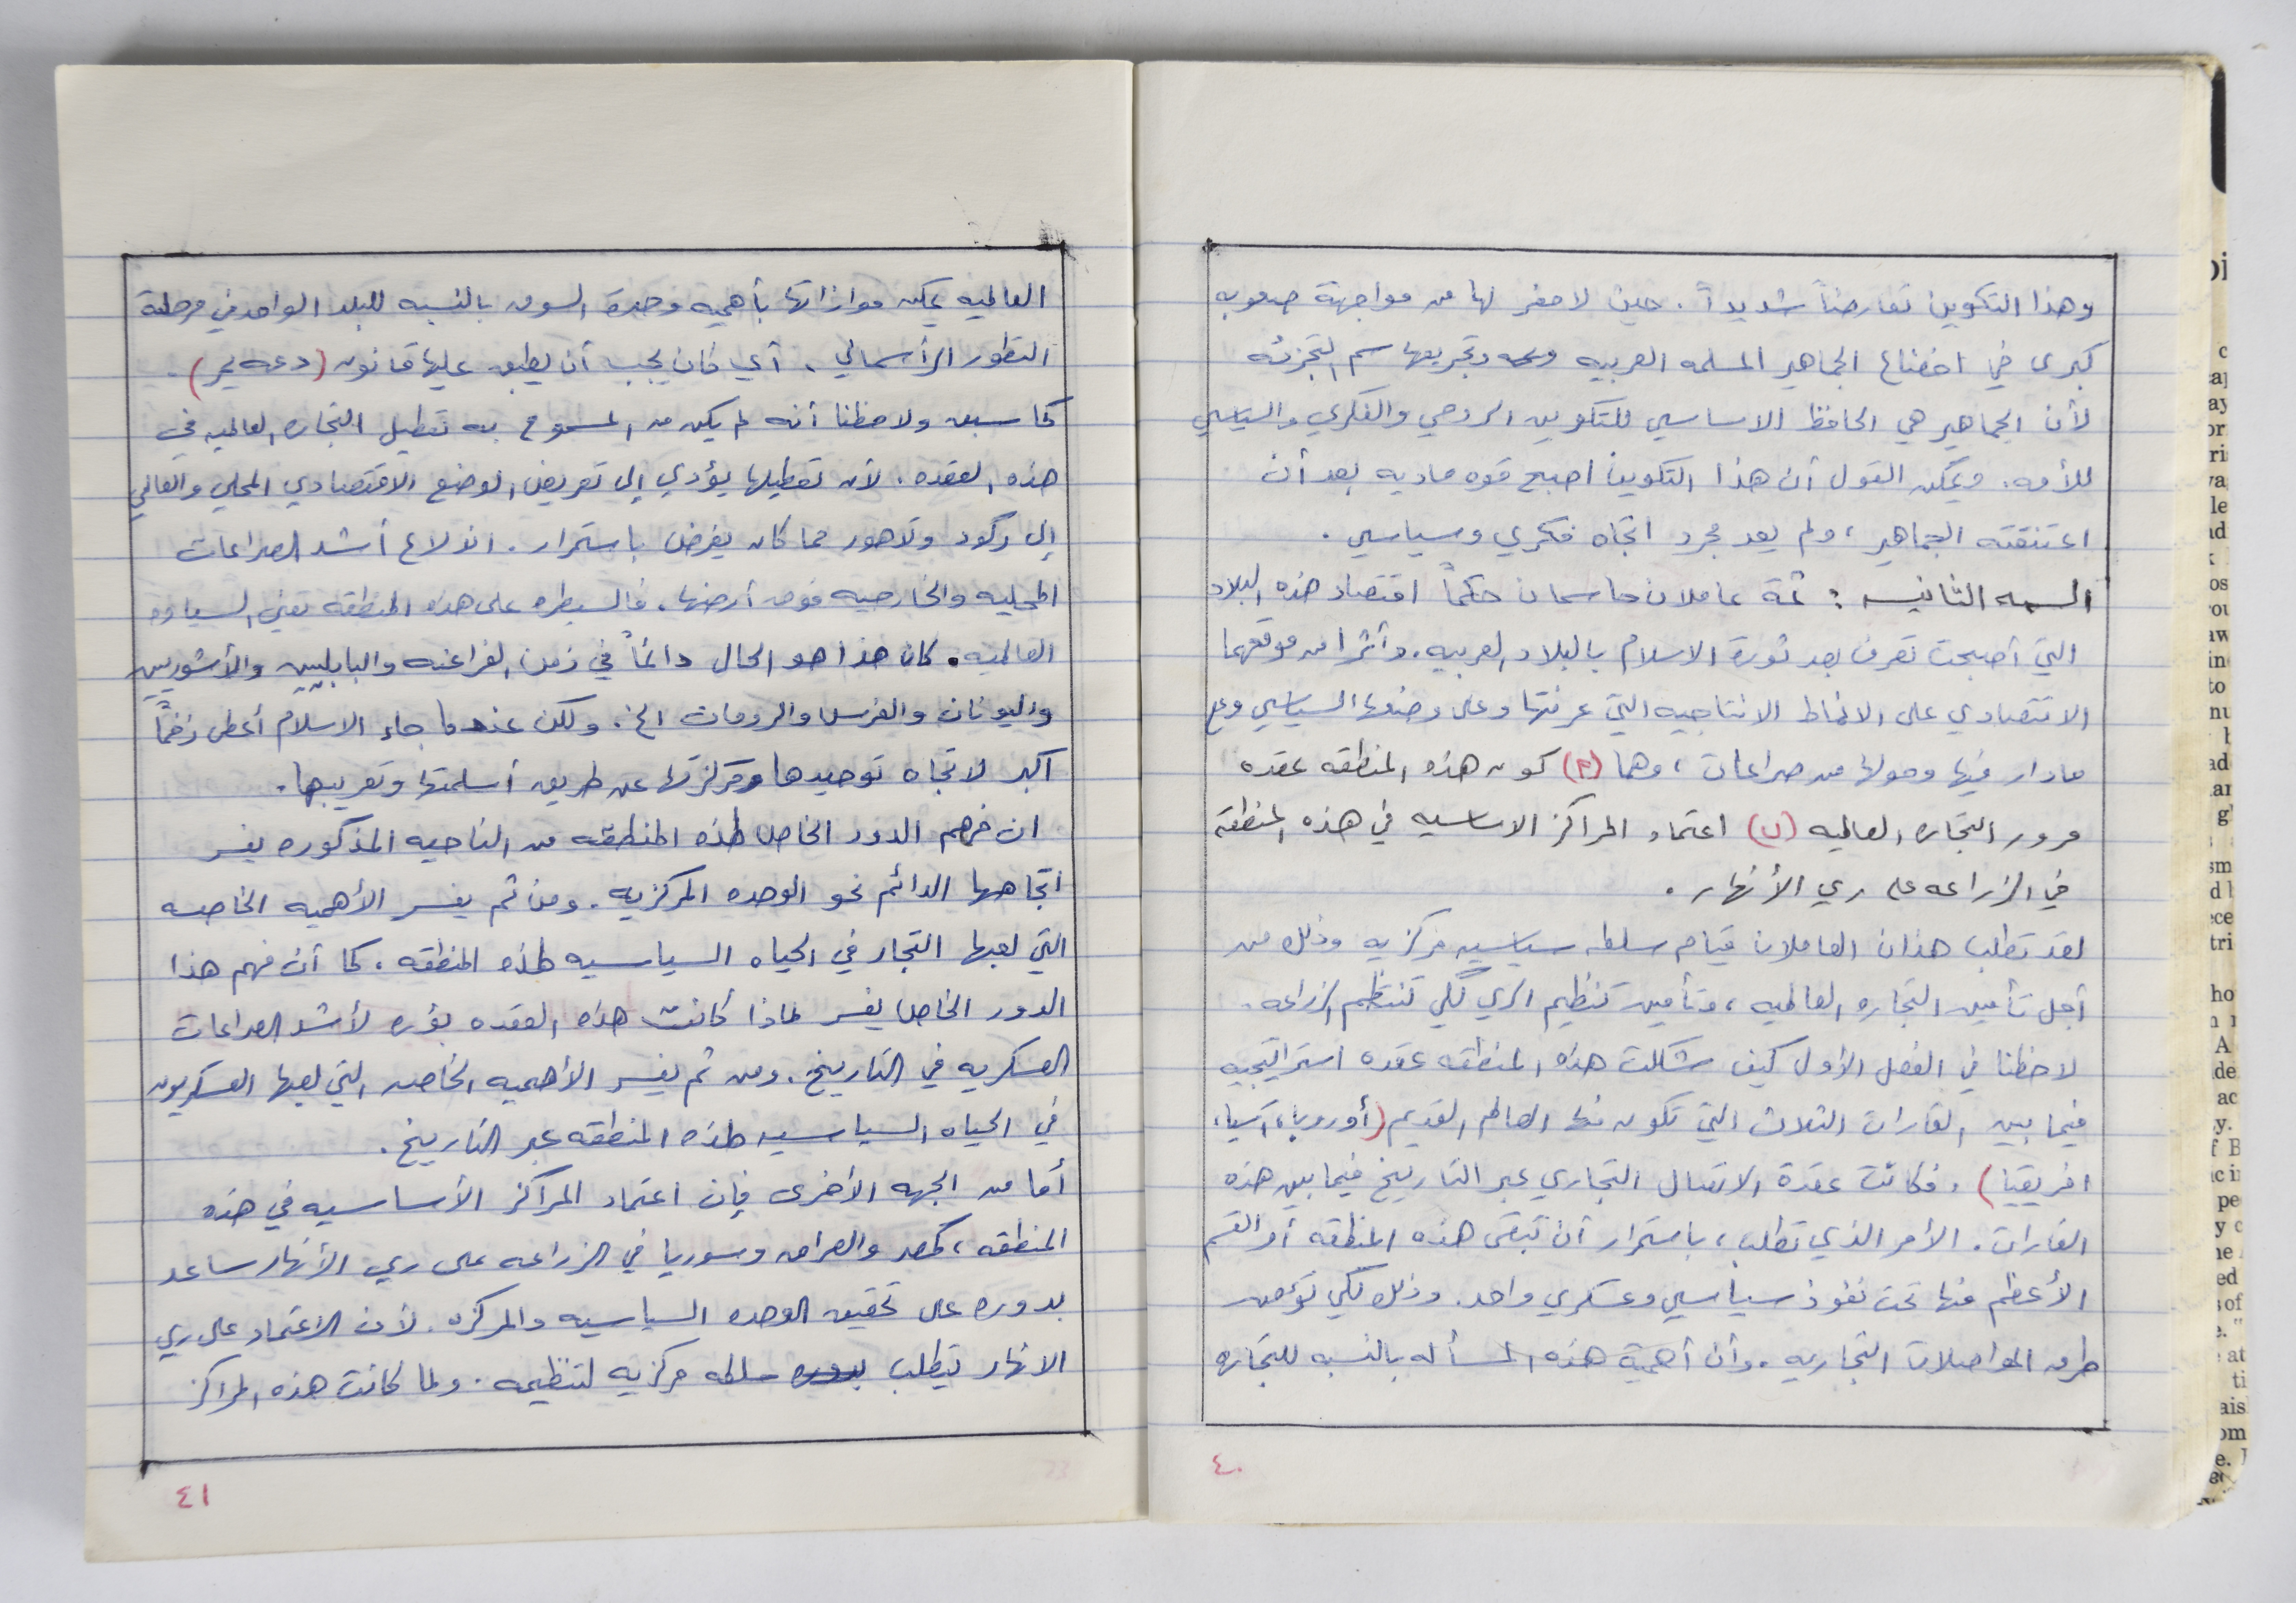 وهذا التكوين تعارضاً شديداً. حين لا مفر لها من مواجهة صعوبه
كبرى في اخضاع الجماهير المسلمه العربيه وتجريعها سم التجزئه
لأن الجماهير هي الحافظ الاساسي للتكوين الروحي والفكري والسياسي
للأمه. ويمكن القول أن هذا التكوين اصبح قوه ماديه بعد أن
اعتنقته الجماهير، ولم يعد مجرد اتجاه فكري وسياسي.
السمه الثانيه: ثمة عاملان حاسمان حكما اقتصاد هذه البلاد
التي أصبحت تعرف بعد ثورة الاسلام بالبلاد العربيه. وأثرا من موقعهما
الاقتصادي على الانماط الانتاجيه التي عرفتها وعلى وضعها السياسي وعلى
ما دار فيها وحولها من صراعات، وهما (٢) كون هذه المنطقه عقده
مرور التجاره العالميه (ب) اعتماد المراكز الاساسيه في هذه المنطقة
في الزراعه على ري الأنهار.
لقد تطلب هذان العاملان قيام سلطه سياسيه مركزيه وذلك من
أجل تأمين التجاره العالميه، وتأمين تنظيم الري لكي تنتظم الزراعه.
لاحظنا في الفصل الأول كيف شكلت هذه المنطقه عقده استراتيجيه
فيما بين القارات الثلاث التي تكون منها العالم القديم (أوروبا، آسيا،
افريقيا). فكانت عقدة الاتصال التجاري عبر التاريخ فيما بين هذه
القارات. الأمر الذي تطلب، باستمرار أن تبقى هذه المنطقه أو القسم
الأعظم منها تحت نفوذ سياسي وعسكري واحد. وذلك لكي تؤمن
طرق المواصلات التجاريه. وأن أهمية هذه المسأله بالنسبه للتجاره
٤٠
العالميه يمكن موازاتها بأهميه وحدة السوق بالنسبه للبلد الواحد في مرحلة
التطور الرأسمالي، أي كان يجب أن يطبق عليها قانون (دعه يمر).
كما سبق ولاحظنا أنه لم يكن من المسموح به تعطيل التجاره العالميه في
هذه العقده. لأن تعطيلها يؤدي إلى تعريض الوضع الاقتصادي المحلي والعالمي
إلى ركود وتدهور مما كان يفرض باستمرار. اندلاع أشد الصراعات
المحليه والخارجيه فوق أرضها. فالسيطره على هذه المنطقه تعني السياده
العالميه. كان هذا هو الحال دائماً في زمن الفراعنه والبابليين والأشوريين
واليونان والفرس والرومان الخ. ولكن عندما جاء الاسلام أعطى زخماً
اكبر لاتجاه توحيدها ومركزتها عن طريق أسلمتها وتعريبها.
ان فهم الدور الخاص لهذه المنطقه من الناحيه المذكوره يفسر
اتجاهها الدائم نحو الوحده المركزيه. ومن ثم يفسر الأهميه الخاصه
التي لعبها التجار في الحياه السياسيه لهذه المنطقه. كما أن فهم هذا
الدور الخاص يفسر لماذا كانت هذه العقده بؤره لأشد الصراعات
العسكريه في التاريخ. ومن ثم يفسر الأهميه الخاصه التي لعبها العسكريون
في الحياه السياسيه لهذه المنطقه عبر التاريخ.
أما من الجهه الأخرى فإن اعتماد المراكز الأساسيه في هذه
المنطقه، كمصر والعراق وسوريا في الزراعه على ري الأنهار ساعد
بدوره على تحقيق الوحده السياسيه والمركزه. لأن الاعتماد على ري
الانهار يتطلب سلطه مركزيه لتنظيمه. ولما كانت هذه المراكز
٤١